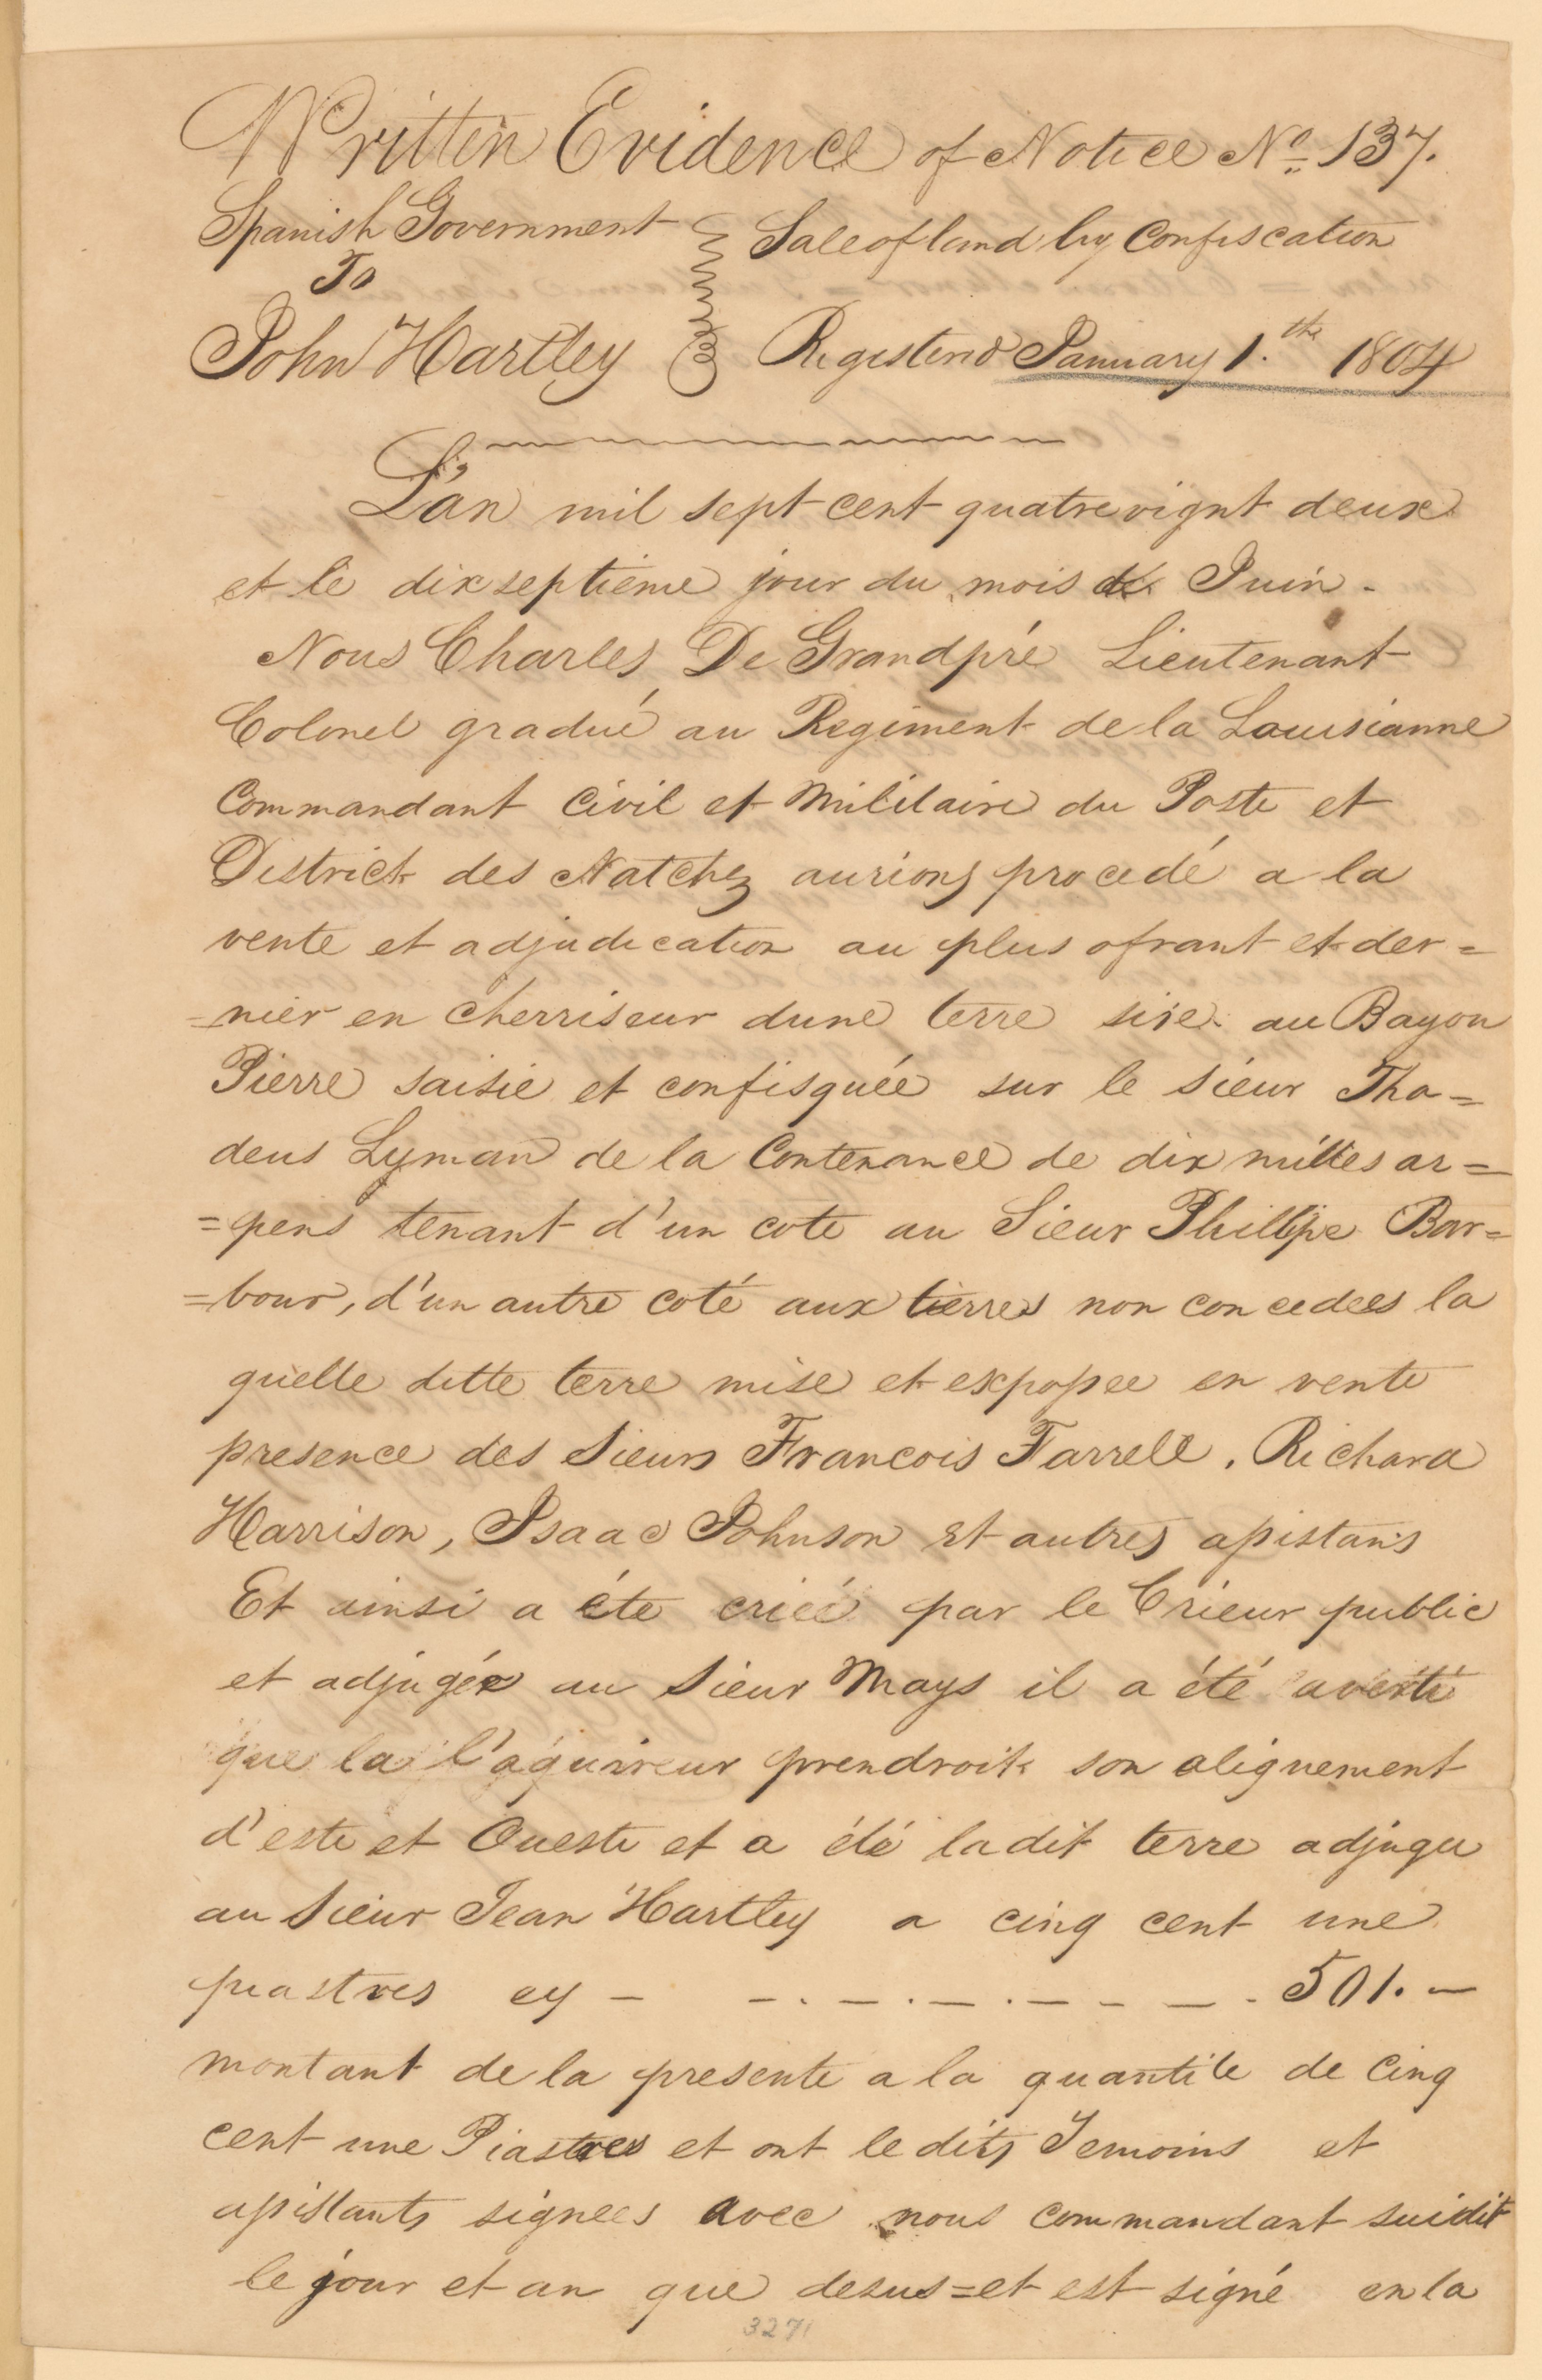 Written Evidence of Notice No. 137.
Spanish Government
To
John Hartley
Sale of land by Confiscation
Registered January 1.th 1804
L'an mil sept cent quatre vignt deux
et le dix septieme jour du mois de Juin -
Nous Charles De Grandpré Lieutenant
Colonel gradué au Regiment de la Louisianne
Commandant Civil et Militaire du Poste et
District des Natchez aurions procedé a la
vente et adjudication au plus ofrant et der=
=nier en cherriseur dune terre sise au Bayou
Pierre saisie et confisquée sur le Sieur Tha=
deus Lyman de la Contenance de dix milles ar=
=pens tenant d'un cote au Sieur Phillipe Bar=
=bour, d'un autre coté aux tierres non concedees la
quelle ditte terre mise et exposee en vente
presence des Sieurs Francois Farrell, Richard
Harrison, Isaac Johnson et autres assistans
Et ainsi a éte criée par le Crieur public
et adjugée au Sieur Mays il a été averti
que la l'aquireur prendroit son alignement
d'este et Oueste et a été ladit terre adjugee
au Sieur Jean Hartley a cinq cent une
piastres cy - - . - . - . - - - . 501. -
montant de la presente a la quantite de Cinq
cent une Piastres et ont le dits Temoins et
assistants signees avec nous Commandant suidit
le jour et an que desus = et est signé en la
3271